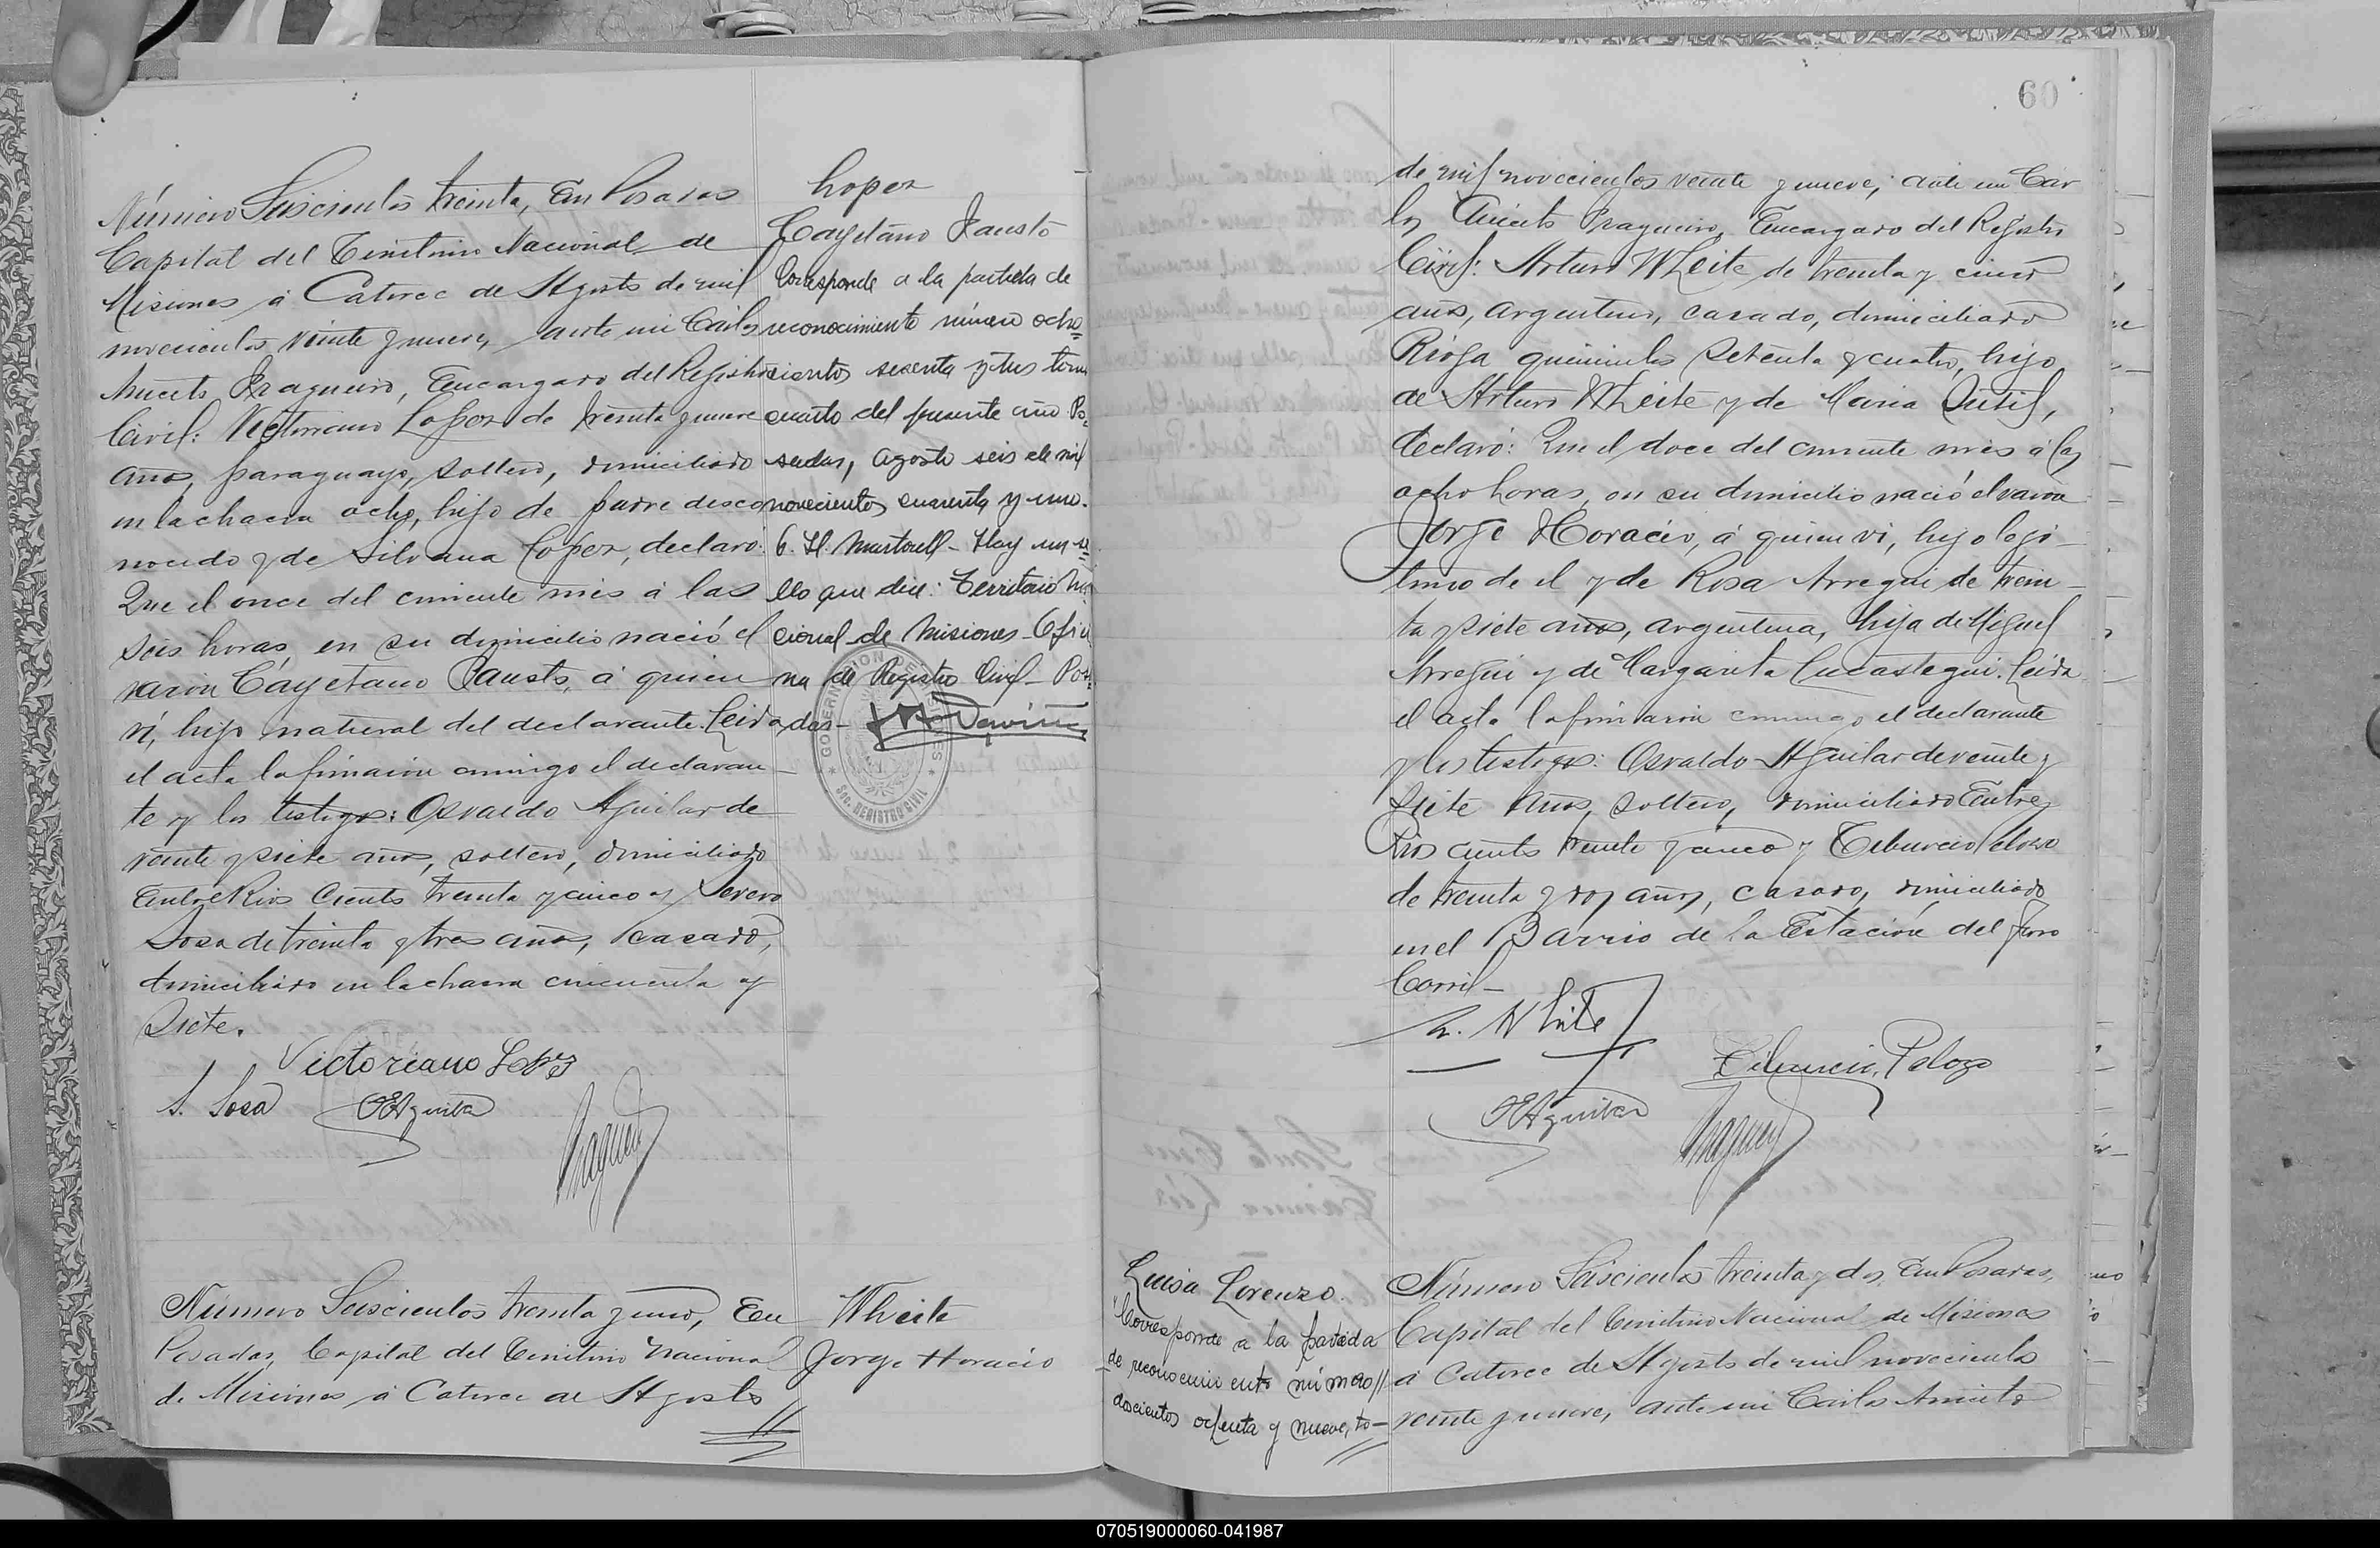 Número Seiscientos treinta, En Posadas
Capital del Territorio Nacional de
Misiones á Catorce de Agosto de mil
novecientos veinte y nueve, ante mi Carlos
Aniceto Fragueiro, Encargado del Registro
Civil: Victoriano Lopez de treinta y nueve
años, paraguayo, soltero, domiciliado
en la chacra ocho, hijo de padre desco
nocido y de Silvana Lopez, declaró:
Que el once del corriente mes á las
seis horas, en su domicilio nació el
varon Cayetano Fausto, á quien
ví, hijo natural del declarante. Leida
el acta la firmaron conmigo el declaran
te y los testigos: Osvaldo Aguilar de
veinte y siete años, soltero, domiciliado
Entre Rios Ciento treinta y cinco y Severo
Sosa de treinta y tres años, casado,
domiciliado en la chacra cincuenta y
siete.
Victoriano Lopz
S. Sosa OEAguilar
Fragueiro
Lopez
Cayetano Fausto
Corresponde a la partida de
reconocimiento número ocho
cientos sesenta y tres tomo
cuarto del presente año Po=
sadas, agosto seis de mil
novecientos cuarenta y uno.
Hay un se
llo que dice: Territorio Na
cional de Misiones - Ofici
na de Registro Civil - Posa
das -
GOBERNACION DE MISIONES
SEC. REGISTRO CIVIL
Número Seiscientos treinta y uno, En
Posadas, Capital del Territorio Nacional
de Misiones á Catorce de Agosto
Wheite
Jorge Horacio
60
de mil novecientos veinte y nueve, ante mi Car
los Aniceto Fragueiro, Encargado del Registro
Civil: Arturo Wheite de treinta y cinco
años, argentino, casado, domiciliado
Rioja quinientos setenta y cuatro, hijo
de Arturo Wheite y de Maria
declaró: Que el doce del corriente mes á las
ocho horas, en su domicilio nació el varon
Jorge Horacio, á quien vi, hijo legi
timo de el y de Rosa Arregui de trein
ta y siete años, argentina, hija de Miguel
Arregui y de Margarita Lucastegui. Leida
el acta la firmaron conmigo el declarante
y los testigos: Osvaldo Aguilar de veinte y
siete años, soltero, domiciliado Entre
Rios ciento treinta y cinco y Tiburcio Pelozo
de treinta y dos años, casado, domiciliado
en el Barrio de la Estación del Ferro
Carril -
A. White
Tiburcio Pelozo
OEAguilar
Fragueiro
Luisa Lorenzo.
Corresponde a la partida
de reconocimiento número //
doscientos ochenta y nueve, to-
Número Seiscientos treinta y dos, En Posadas,
Capital del Territorio Nacional de Misiones
á Catorce de Agosto de mil novecientos
veinte y nueve, ante mi Carlos Aniceto
070519000060-041987